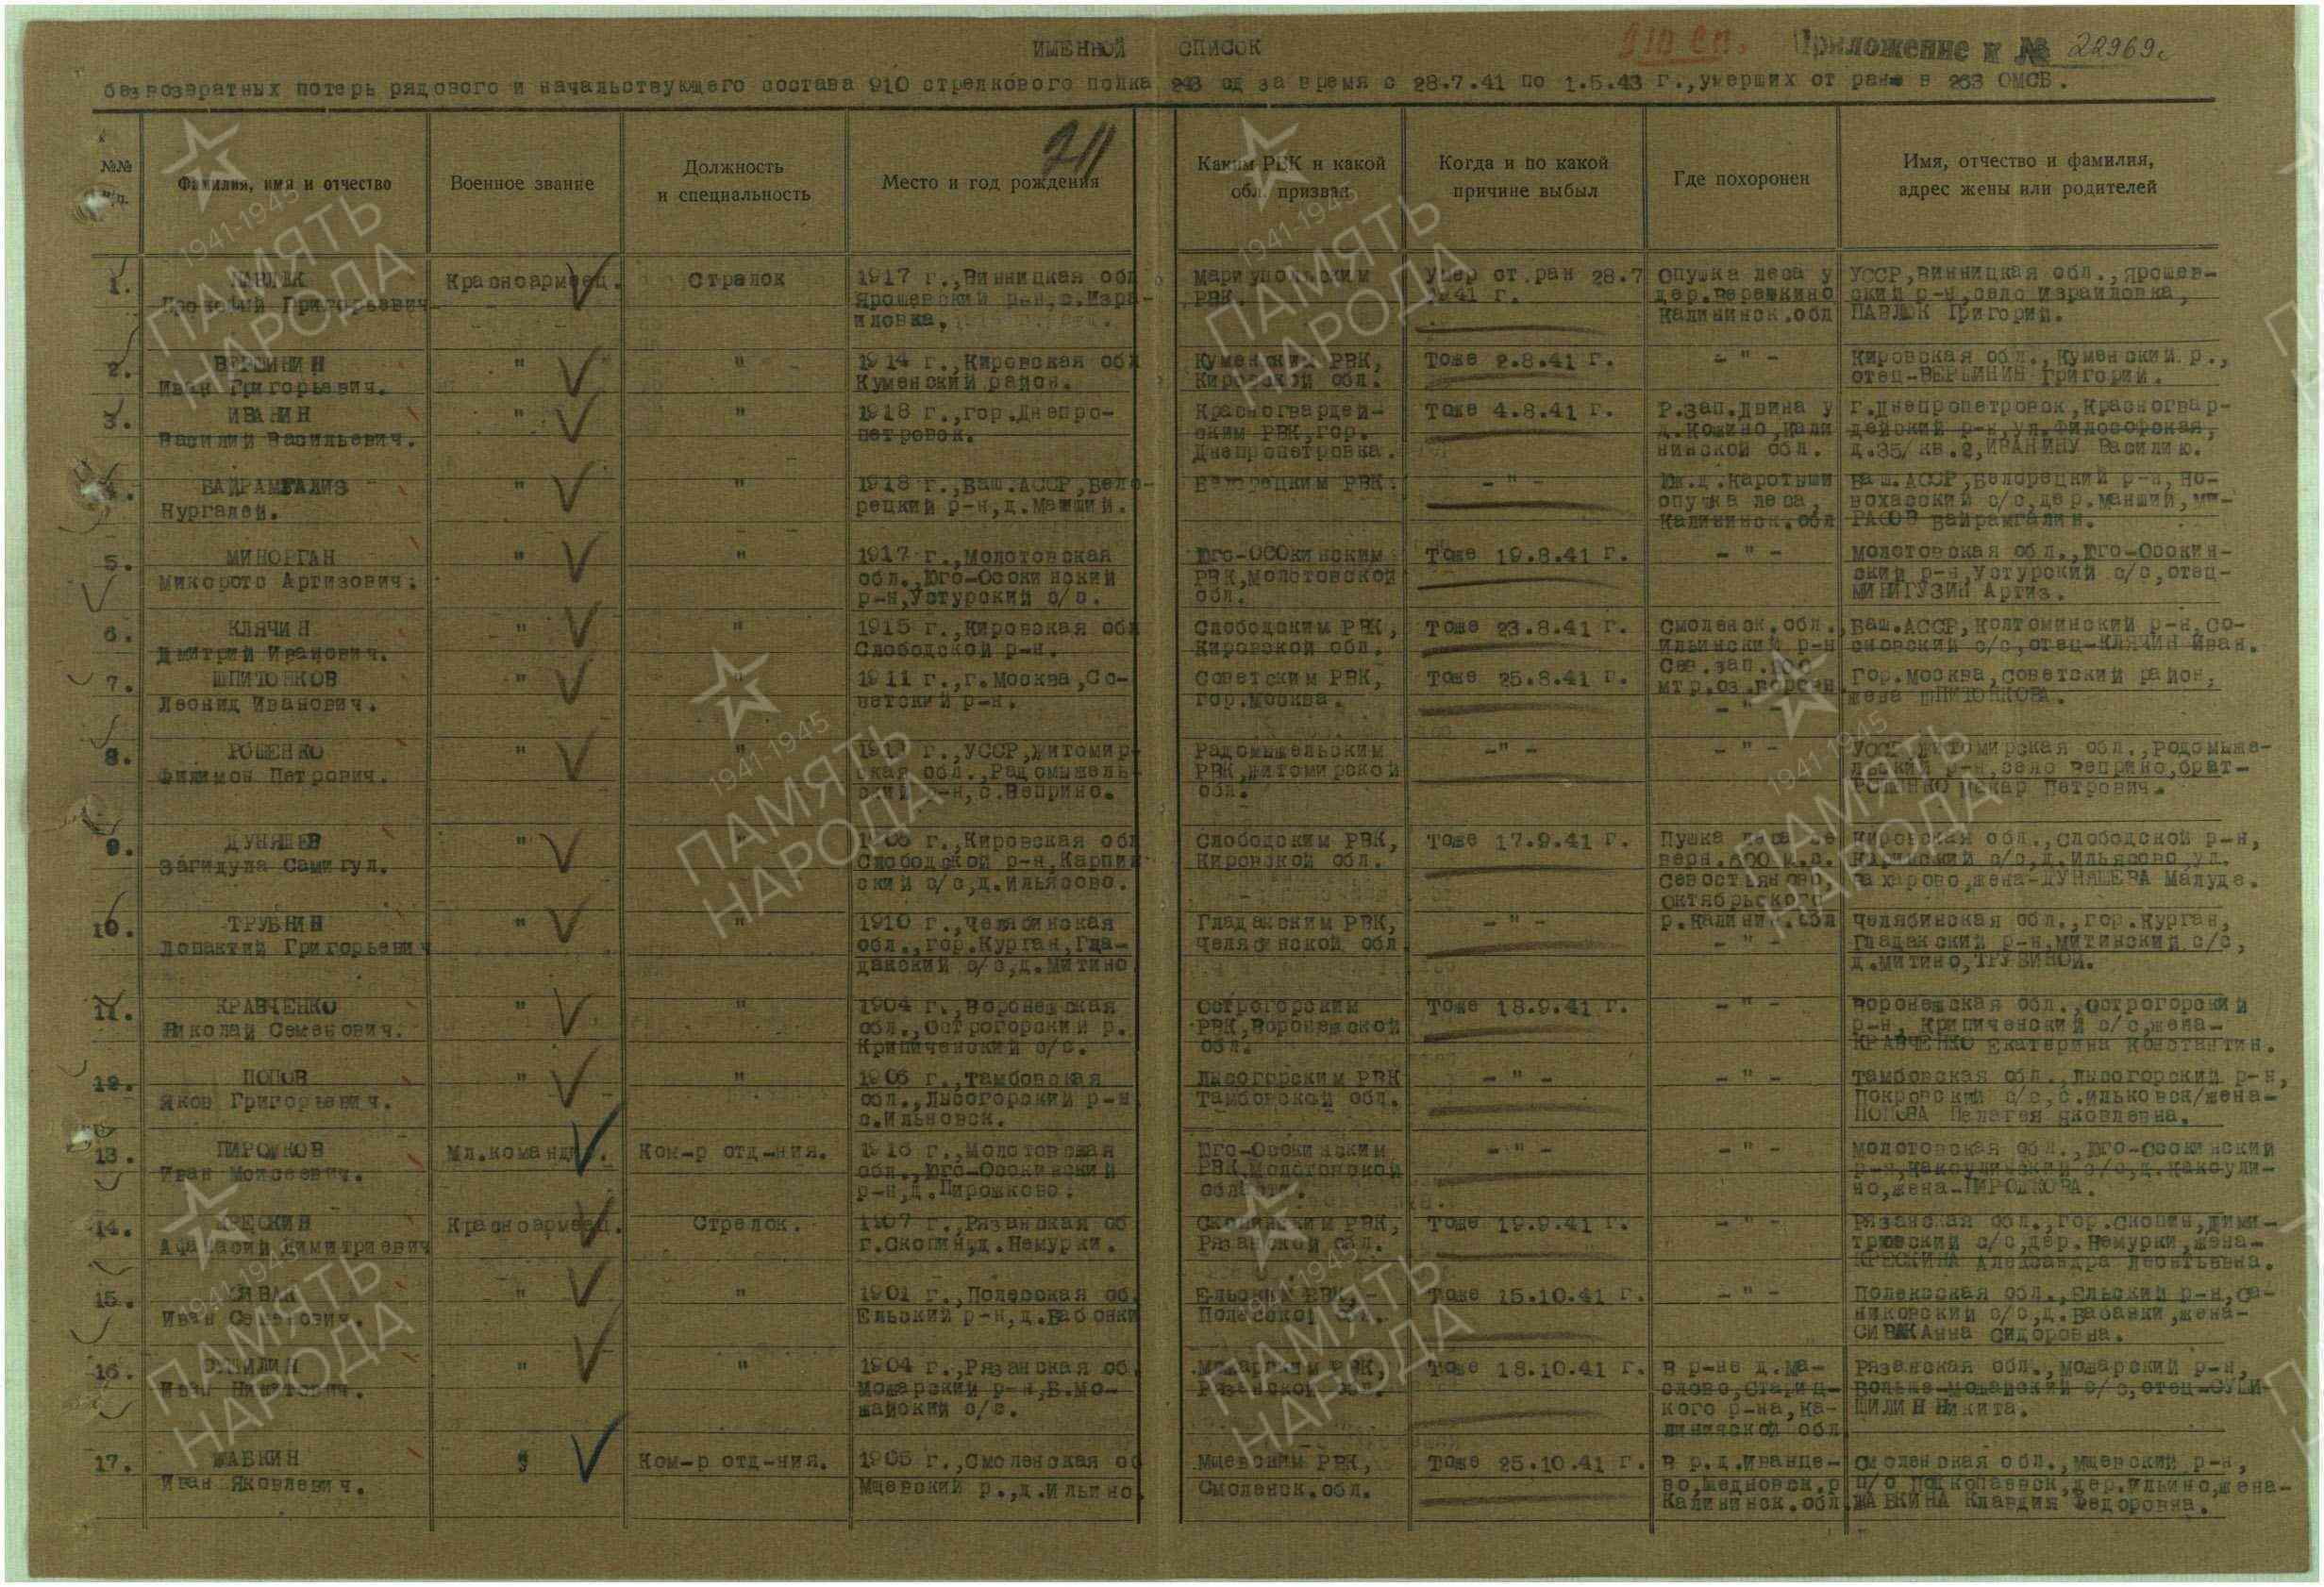 ИМЕННОЙ СПИСОК
910 сп.
Приложение к № 22969с
безвозвратных потерь рядового и начальствующего состава 910 стрелкового полка 243 сд за время с 28.7.41 по 1.5.43 г., умерших от ран в 263 ОМСБ.
№№ п/п.
Фамилия, имя и отчество
Военное звание
Должность
и специальность
Место и год рождения
Каким РВК и какой
обл. призван
Когда и по какой
причине выбыл
Где похоронен
Имя, отчество и фамилия,
адрес жены или родителей
1. Григорьевич Красноармеец. Стрелок
1917 г., Винницкая обл
Ярошевский р-н, с. Изра-
иловка.
Мариупольским
РВК.
Умер от ран 28.7
41 г.
Опушка леса у
дер. Верешкино
Калининск. обл
УССР, Винницкая обл., Ярошев-
ский р-н, село Израиловка,
ПАВЛЮК Григорий.
2. ВЕРШИНИН
Иван Григорьевич.
" "
1914 г., Кировская обл
Куменский район.
Куменским РВК,
Кировской обл.
Тоже 2.8.41 г.
- " -
Кировская обл., Куменский р.,
отец-ВЕРШИНИН Григорий.
3. ИВАНИН
Василий Васильевич.
" "
1918 г., гор. Днепро-
петровск.
Красногвардей-
ским РВК, гор.
Днепропетровка.
Тоже 4.8.41 г.
Р. Зап. Двина у
д. Кошино, Кали
нинской обл.
г. Днепропетровск, Красногвар-
дейский р-н, ул. Философская,
д. 35/ кв. 2, ИВАНИНУ Василию.
4. БАЙРАМГАЛИЗ
Нургалей.
" "
1918 г., Баш. АССР, Бело-
рецкий р-н, д. Манший.
Белорецким РВК.
- " -
Юж. д. Каротыши
опушка леса,
Калининск. обл
Баш. АССР, Белорецкий р-н, Но-
вохасский с/с, дер. Манший, МИ-
РАСОВ Байрамгалин.
5. МИНОРГАН
Микорото Артизович.
" "
1917 г., Молотовская
обл., Юго-Осокинский
р-н, Устурский с/с.
Юго-Осокинским
РВК, Молотовской
обл.
Тоже 19.8.41 г.
- " -
Молотовская обл., Юго-Осокин-
ский р-н, Устурский с/с, отец-
МИНИГУЗИН Артиз.
6. КЛЯЧИН
Дмитрий Иванович.
" "
1915 г., Кировская обл
Слободской р-н.
Слободским РВК,
Кировской обл.
Тоже 23.8.41 г.
Смоленск. обл.,
Ильинский р-н
Сев. зап.
Баш. АССР, Колтоминский р-н, Со-
сновский с/с, отец-КЛЯЧИН Иван.
7. ШПИТОНКОВ
Леонид Иванович.
" "
1911 г., г. Москва, Со-
ветский р-н.
Советским РВК,
гор. Москва.
Тоже 25.8.41 г.
- " -
Гор. Москва, Советский район,
жена ШПИТОНКОВА.
8. РОШЕНКО
Филимон Петрович.
" "
г., УССР, Житомир-
ская обл., Радомышель-
ский р-н, с. Веприно.
Радомышельским
РВК, Житомирской
обл.
- " -
- " -
УССР, Житомирская обл., Родомыше-
льский р-н, село Веприно, брат-
РОШЕНКО Макар Петрович.
9. ДУНЯШЕВ
Загидула Самигул.
" "
г., Кировская обл
Слободской р-н, Карпин-
ский с/с, д. Ильясово.
Слободским РВК,
Кировской обл.
Тоже 17.9.41 г.
Пушка леса се
верн. 800 м. с.
Севостьяново
Октябрьского
р. Калинин. обл
Кировская обл., Слободской р-н,
Каринский с/с, д. Ильясово, ул.
Захарово, жена-ДУНЯШЕВА Малуда.
10. ТРУБНИН
Лопактий Григорьевич
" "
1910 г., Челябинская
обл., гор. Курган, Гла-
данский с/с, д. Митино
Гладакским РВК,
Челябинской обл
- " -
- " -
Челябинская обл., гор. Курган,
Гладакский р-н, Митинский с/с,
д. Митино, ТРУБИНОЙ.
11. КРАВЧЕНКО
Николай Семенович.
" "
1904 г., Воронежская
обл., Острогорский р.
Криниченский с/с.
Острогорским
РВК, Воронежской
обл.
Тоже 18.9.41 г.
- " -
Воронежская обл., Острогорский
р-н, Криниченский с/с, жена-
КРАВЧЕНКО Екатерина Константин.
12. ПОПОВ
Яков Григорьевич.
" "
1906 г., Тамбовская
обл., Лысогорский р-н
с. Ильновск.
Лысогорским РВК
Тамбовской обл.
- " -
- " -
Тамбовская обл., Лысогорский р-н,
Покровский с/с, с. Ильковск/жена-
ПОПОВА Пелагея Яковлевна.
13. ПИРОЖКОВ
Иван Моисеевич.
Мл. команд. Ком-р отд-ния.
1916 г., Молотовская
обл., Юго-Осокинский
р-н, д. Пирожково.
Юго-Осокинским
РВК, Молотовской
области.
- " -
- " -
Молотовская обл., Юго-Осокинский
р-н, Каксулинский с/с, д. Каксули-
но, жена-ПИРОЖКОВА.
14. КРЕСКИН
Афанасий Димитриевич
Красноармеец. Стрелок.
1907 г., Рязанская об
г. Скопин, д. Немурки.
Скопинским РВК,
Рязанской обл.
Тоже 19.9.41 г.
- " -
Рязанская обл., гор. Скопин, Дими-
триевский с/с, дер. Немурки, жена-
КРЕСКИНА Александра Леонтьевна.
15. СИВАК
Иван
" "
1901 г., Полесская об.
Ельский р-н, д. Бабонки
Ельским РВК,
Полесской обл.
Тоже 15.10.41 г.
- " -
Полесская обл., Ельский р-н, Са-
никовский с/с, д. Бабавки, жена-
СИВАК Анна Сидоровна.
16. СУШИЛИН
Иван Никитович.
" "
1904 г., Рязанская об.
Можарский р-н, Б. Мо-
жайский с/с.
Можарским РВК,
Рязанской обл.
Тоже 18.10.41 г.
В р-не д. Ма-
слово, Стариц-
кого р-на, Ка-
лининской обл
Рязанская обл., Можарский р-н,
Больше-Можайский с/с, отец-СУШИ-
ШИЛИН Никита.
17. ЖАБКИН
Иван Яковлевич.
" Ком-р отд-ния.
1905 г., Смоленская об
Мщевский р., д. Ильино
Мщевским РВК,
Смоленск. обл.
Тоже 25.10.41 г.
В р. д. Иванце-
во, Медновск. р
Калининск. обл
Смоленская обл., Мщевский р-н,
п/о Подкопаевск, дер. Ильино, жена-
ЖАБКИНА Клавдия Федоровна.
1941-1945
ПАМЯТЬ
НАРОДА